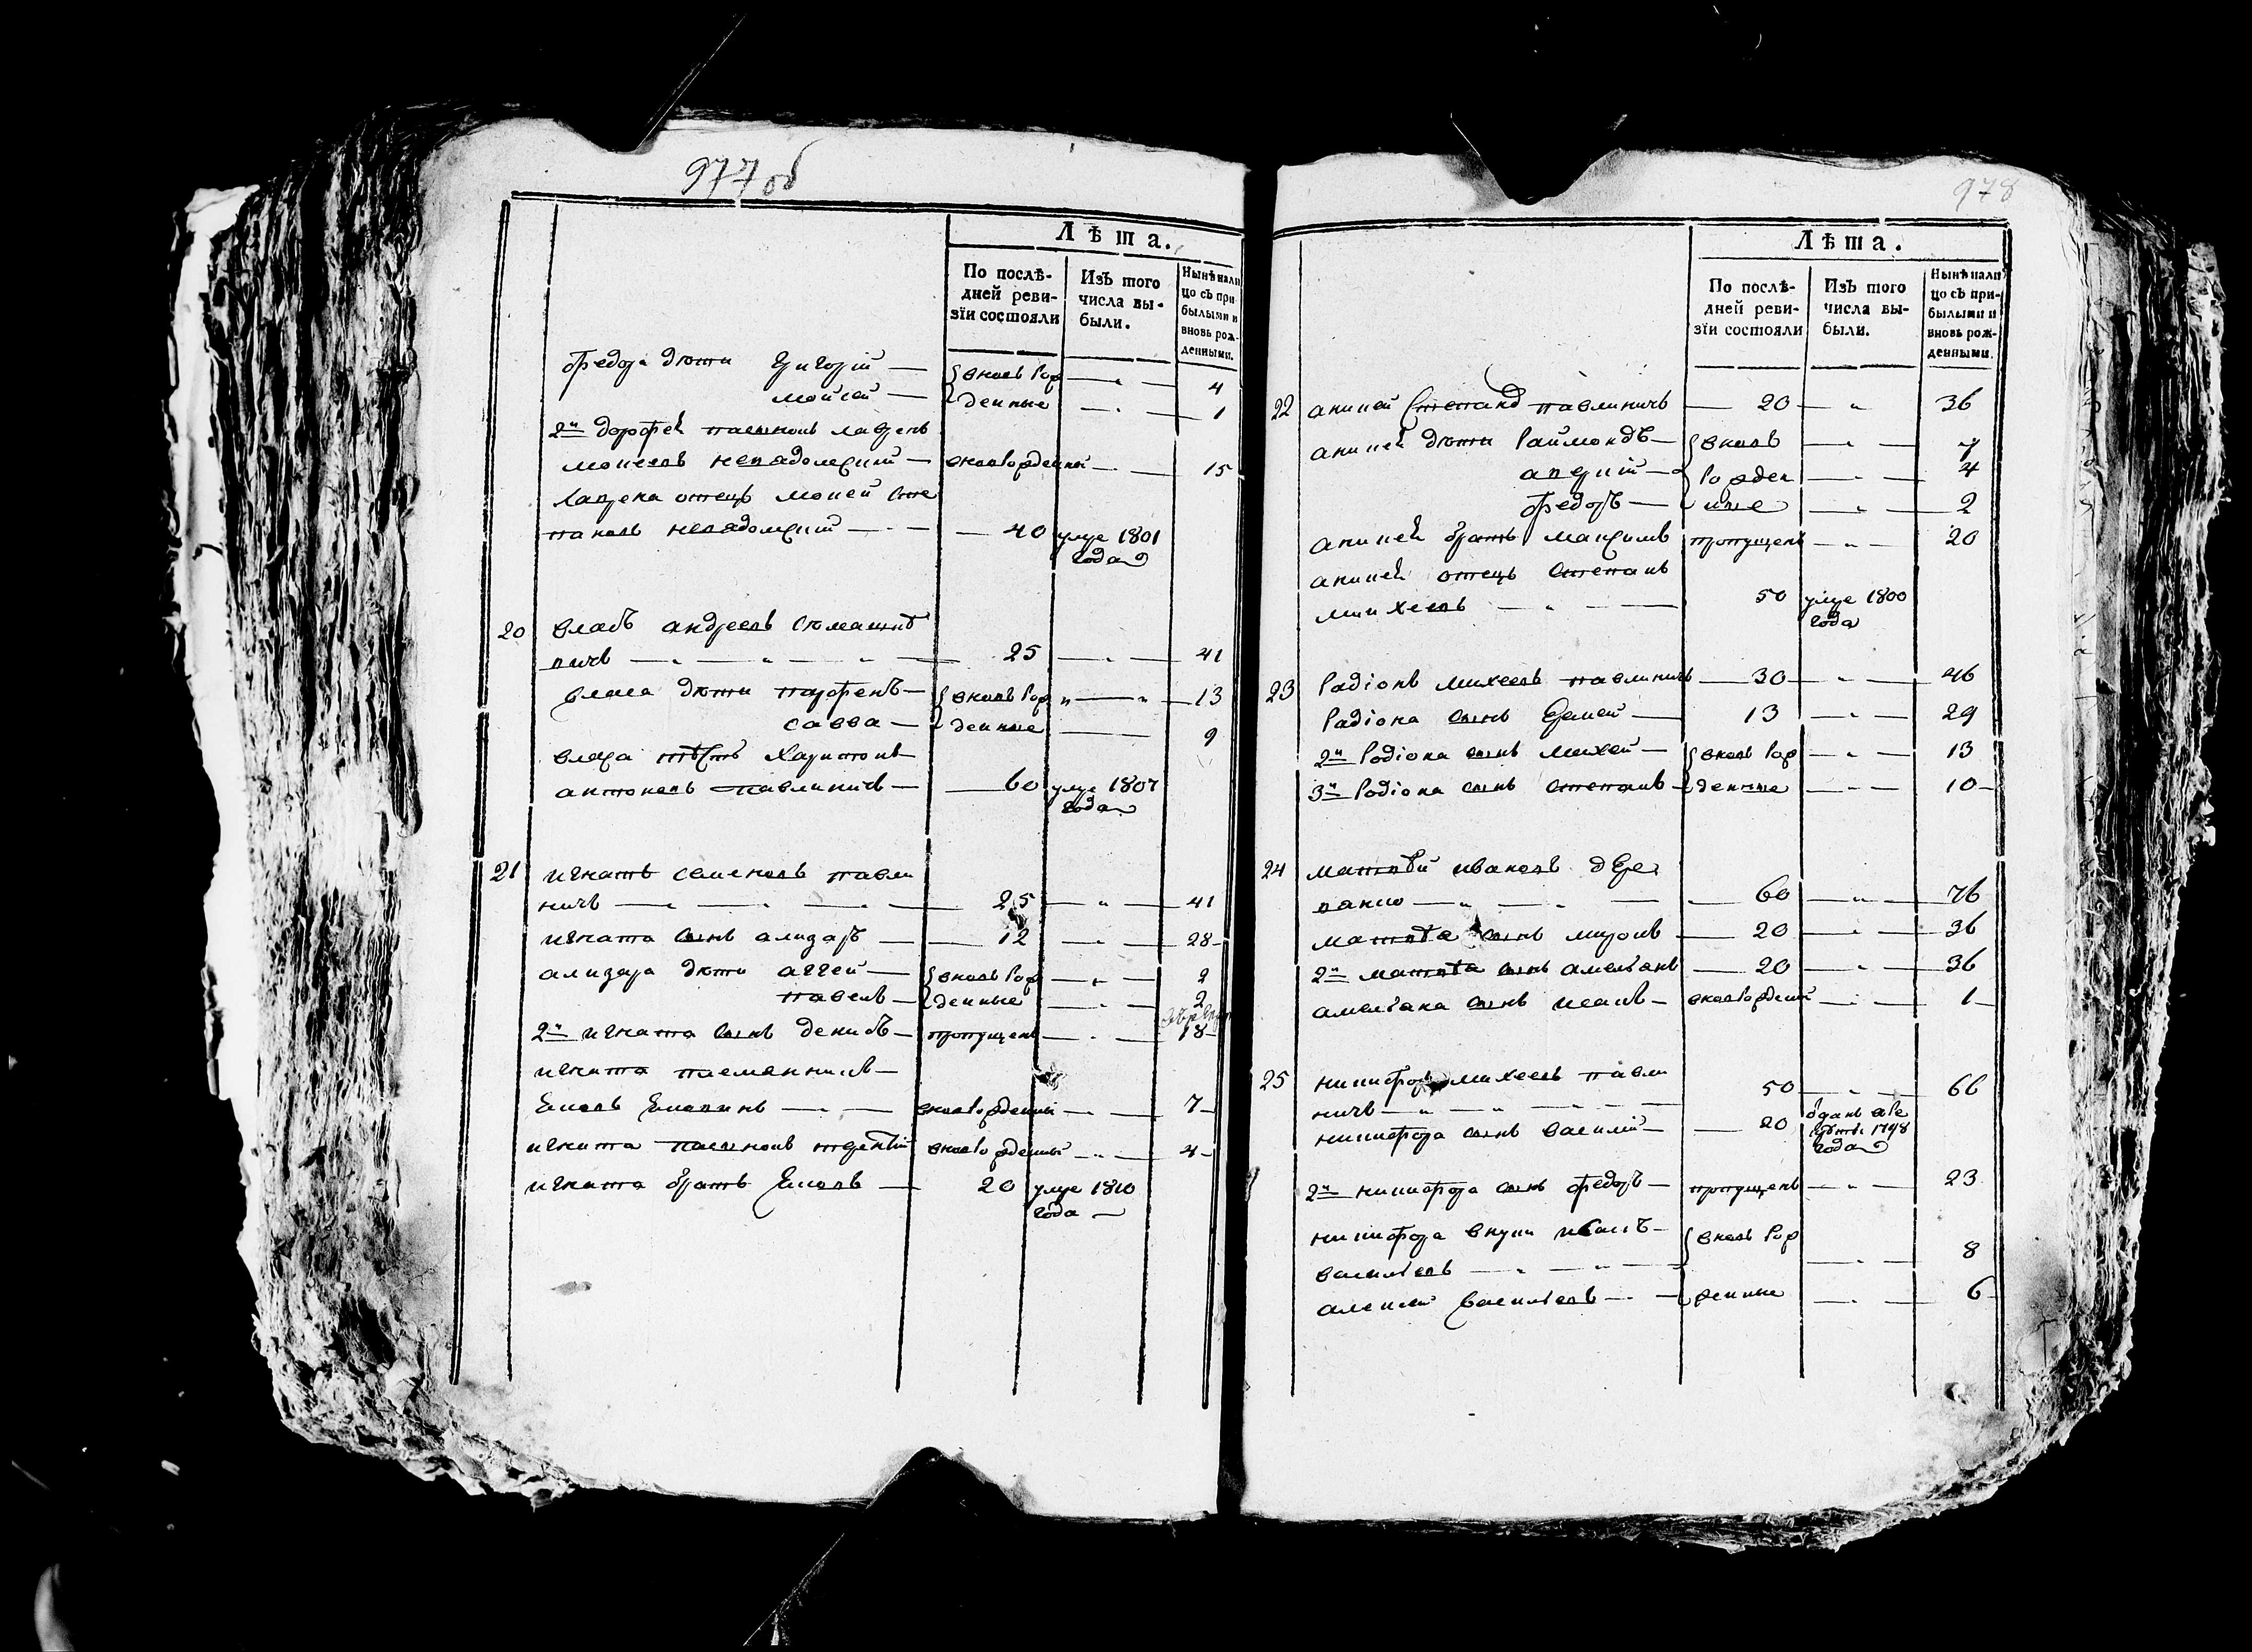 977 об
Лѣта.
По послѣ-
дней реви-
зіи состояли
Изъ того
числа вы-
были.
Нынѣ нали
цо съ при
былыми и
вновь рож-
денными.
федора дѣти григорій — вновь рор — „ — 4
мойсей — денные — „ — 1
2й дорофей пасынокъ лаврень
мокеевъ — вноворденый — „ — 15
лаврена отецъ мокей сте
пановъ — 40 умре 1801
года
20 власъ андреевъ
вичь — „ — „ — „ — 25 — „ — 41
власа дѣти парфенъ — вновь рор „ — „ — 13
савва — денные — 9
власа тѣсть харитонъ
антоновъ павлиничь — 60 умре 1807
года
21 игнатъ семеновъ павли
ничь — „ — „ — „ — 25 — „ — 41
игната сынъ ализаръ — 12 — „ — 28
ализара дѣти аггей — вновь рор — „ — 2
павелъ — денные — „ — 2
2й игната сынъ денисъ — пропущенъ — „ — 18
игната племенникъ —
вноворденый — „ — 7
игната пасынокъ вноворденый — „ — 4
игната братъ — 20 умре 1810
года —
978
Лѣта.
По послѣ-
дней реви-
зіи состояли
Изъ того
числа вы-
были.
Нынѣ нали
цо съ при-
былыми и
вновь рож-
денными.
22 аникей степанъ павлиничь — 20 — „ 36
аникея дѣти раймондъ — вновь — „ — 7
андрій — ророден — „ — 4
федоръ — ные — „ — 2
аникея братъ максимъ пропущенъ — „ — 20
аникея отецъ степанъ
михеевъ — „ — 50 умре 1800
года
23 радіонъ михеевъ павлиничь — 30 — „ — 46
радіона сынъ ермей — 13 — „ — 29
2й родіона сынъ михей — вновь рор — „ — 13
3й родіона сынъ степанъ — денные — „ — 10 —
24 матвѣй ивановъ дере
ванко — „ — „ — 60 — „ — 76
матвѣя сынъ миронъ — 20 — „ — 36
2й матвѣя сынъ амельянъ — 20 — „ — 36
амельяна сынъ исакъ — вноворденый — „ — 1 —
25 никифоръ михеевъ павли
ничь — „ — „ — „ — 50 — „ — 66
никифора сынъ василій — 20 отданъ в ре
круты 1798
года
2й никифора сынъ федоръ — пропущенъ — „ — 23
никифора внуки ивасъ — вновь рор
васильевъ — „ — „ — „ — 8
алексей васильевъ — „ — денные — „ — 6 —